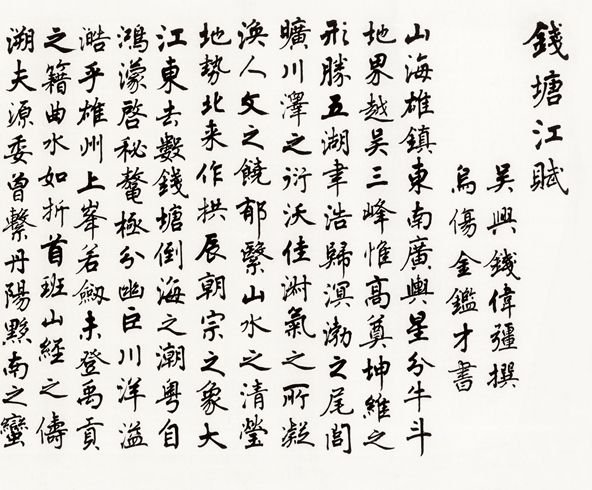 錢塘江賦
吳興錢偉彊撰
烏傷金鑑才書
山海雄鎮東南廣輿星分牛斗
地界越吳三峰惟高奠坤維之
形勝五湖聿浩歸溟渤之尾閭
曠川澤之衍沃佳淑氣之所凝
渙人文之饒郁繄山水之清瑩
地勢北来作拱辰朝宗之象大
江東去數錢塘倒海之潮粵自
鴻濛啓秘鼇極分幽巨川洋溢
澔乎雄州上峯若劔未登禹貢
之籍曲水如折首班山經之儔
溯夫源委曾繫丹陽黟南之蠻